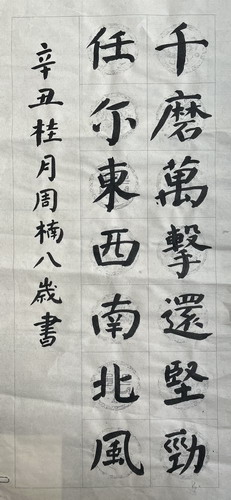 千磨萬擊還堅勁
任尓東西南北風
辛丑桂月周楠八歲書